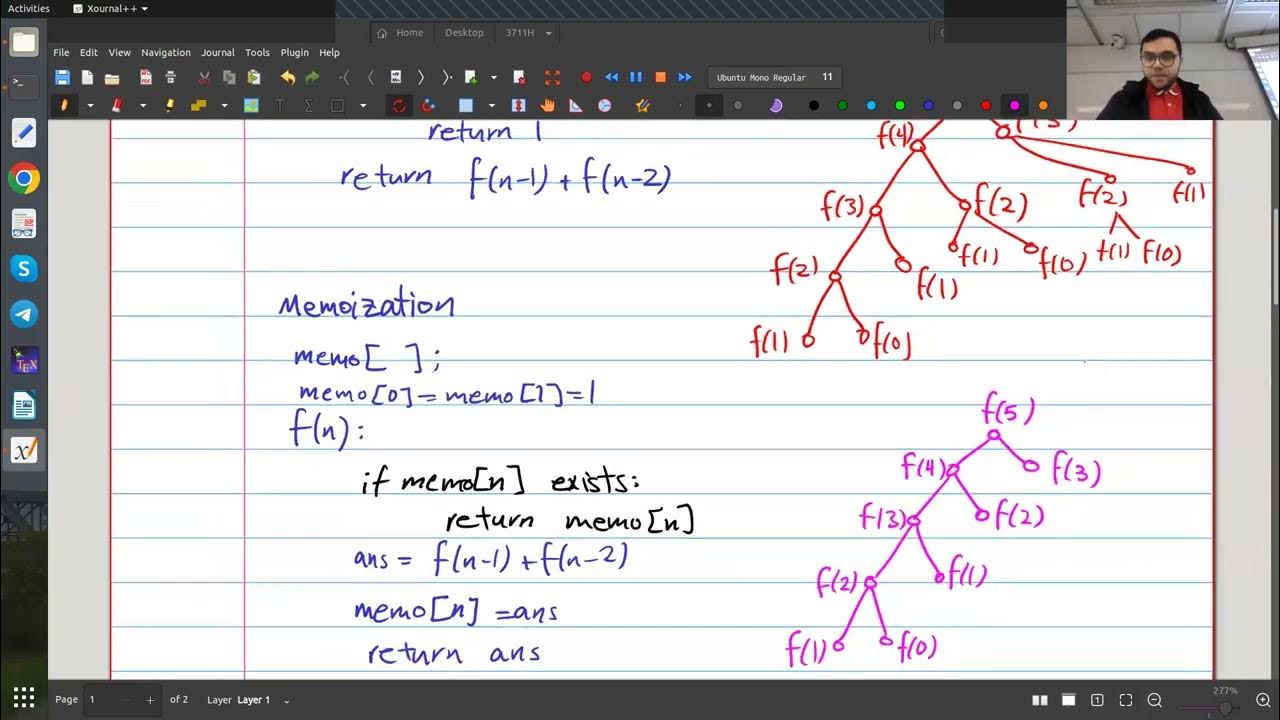 Activities
Xournal++
Home
Desktop
3711H
File Edit View Navigation Journal Tools Plugin Help
Ubuntu Mono Regular 11
return 1
return f(n-1) + f(n-2)
Memoization
memo[ ];
memo[0] = memo[1] = 1
f(n):
if memo[n] exists:
return memo[n]
ans = f(n-1) + f(n-2)
memo[n] = ans
return ans
f(4)
f(3) f(2) f(2) f(1)
f(2) f(1) f(1) f(0) f(1) f(0)
f(1) f(0)
f(5)
f(4) f(3)
f(3) f(2)
f(2) f(1)
f(1) f(0)
TEX
Page 1 of 2 Layer Layer 1
277%